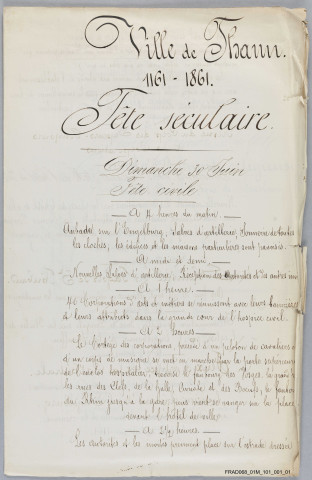 Ville de Thann.
1161 - 1861.
Fête séculaire.
Dimanche 30 Juin
Fête civile
A 4 heures du matin.
Aubade sur l'Engelbourg. Salves d'artillerie, Sonnerie de toutes
les cloches, les édifices et les maisons particulières sont pavoisés.
A midi et demi
Nouvelles salves d'artillerie, Réception des autorités et des autres
A 1 heure.
40 Corporations d'arts et métiers se réunissent avec leurs bannières
et leurs attributs dans la grande cour de l'hospice civil.
A 2 heures
Le Cortège des corporations précédé d'un peloton de cavaliers
et d'un corps de musiciens se met en marche par la porte
de l'enclos hospitalier, traverse le faubourg des Vosges, la grande
les rues des Clefs, de la halle, et des, le faubourg
du Rhin jusqu'à la gare, puis vient se ranger sur la place
devant l'hôtel de ville
A 2½ heures.
Les autorités et les invités prennent place sur l'estrade dressée
FRAD068_01M_101_001_01